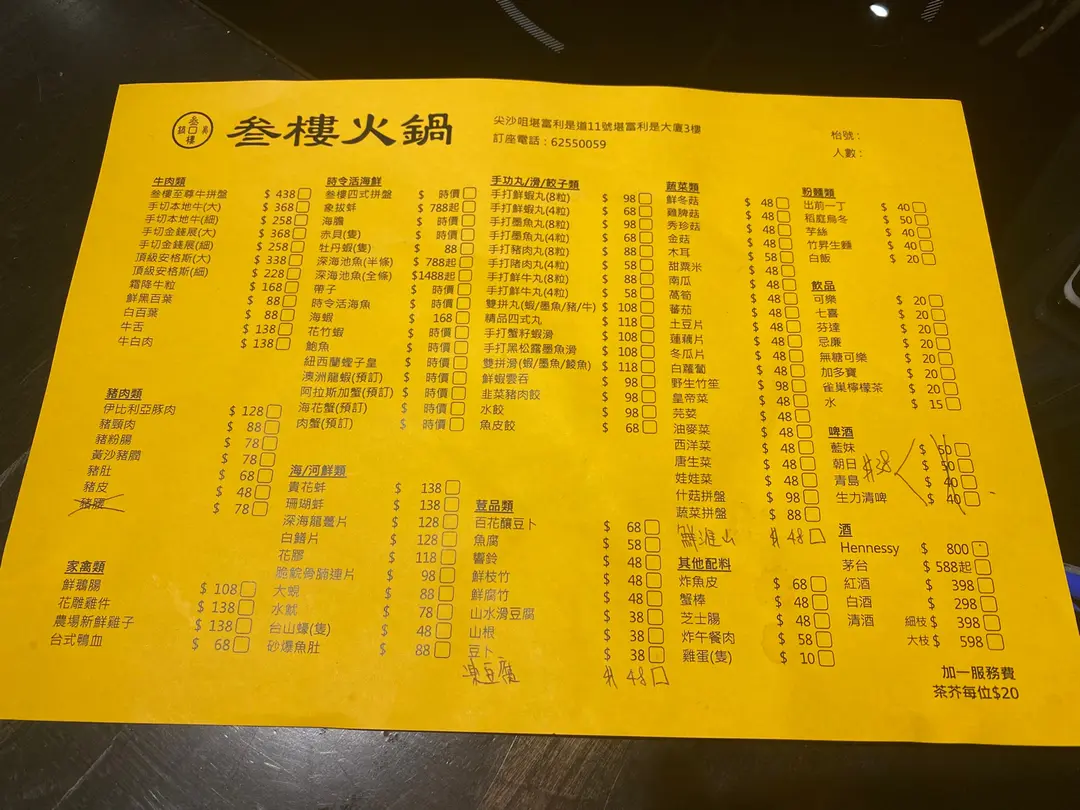 叁樓火鍋
尖沙咀堪富利是道11號堪富利是大廈3樓
訂座電話：62550059
枱號：
人數：
牛肉類
叁樓至尊牛拼盤 $ 438
手切本地牛(大) $ 368
手切本地牛(細) $ 258
手切金錢展(大) $ 368
手切金錢展(細) $ 258
頂級安格斯(大) $ 338
頂級安格斯(細) $ 228
霜降牛粒 $ 168
鮮黑百葉 $ 88
白百葉 $ 88
牛舌 $ 138
牛白肉 $ 138
豬肉類
伊比利亞豚肉 $ 128
豬頸肉 $ 88
豬粉腸 $ 78
黃沙豬膶 $ 78
豬肚 $ 68
豬皮 $ 48
豬腰 $ 78
家禽類
鮮鵝腸 $ 108
花雕雞件 $ 138
農場新鮮雞子 $ 138
台式鴨血 $ 68
時令活海鮮
叁樓四式拼盤 $ 時價
象拔蚌 $ 788起
海膽 $ 時價
赤貝(隻) $ 時價
牡丹蝦(隻) $ 88
深海池魚(半條) $ 788起
深海池魚(全條) $1488起
帶子 $ 時價
時令活海魚 $ 時價
海蝦 $ 168
花竹蝦 $ 時價
鮑魚 $ 時價
紐西蘭蟶子皇 $ 時價
澳洲龍蝦(預訂) $ 時價
阿拉斯加蟹(預訂) $ 時價
海花蟹(預訂) $ 時價
肉蟹(預訂) $ 時價
海/河鮮類
貴花蚌 $ 138
珊瑚蚌 $ 138
深海龍躉片 $ 128
白鱔片 $ 128
花膠 $ 118
脆鯇骨腩連片 $ 98
大蜆 $ 88
水魷 $ 78
台山蠔(隻) $ 48
砂爆魚肚 $ 88
手功丸/滑/餃子類
手打鮮蝦丸(8粒) $ 98
手打鮮蝦丸(4粒) $ 68
手打墨魚丸(8粒) $ 98
手打墨魚丸(4粒) $ 68
手打豬肉丸(8粒) $ 88
手打豬肉丸(4粒) $ 58
手打鮮牛丸(8粒) $ 88
手打鮮牛丸(4粒) $ 58
雙拼丸(蝦/墨魚/豬/牛) $ 108
精品四式丸 $ 118
手打蟹籽蝦滑 $ 108
手打黑松露墨魚滑 $ 108
雙拼滑(蝦/墨魚/鯪魚) $ 118
鮮蝦雲吞 $ 98
韭菜豬肉餃 $ 98
水餃 $ 98
魚皮餃 $ 68
荳品類
百花釀豆卜 $ 68
魚腐 $ 58
響鈴 $ 48
鮮枝竹 $ 48
鮮腐竹 $ 48
山水滑豆腐 $ 38
山根 $ 38
豆卜 $ 38
凍豆腐 $ 48
蔬菜類
鮮冬菇 $ 48
雞脾菇 $ 48
秀珍菇 $ 48
金菇 $ 48
木耳 $ 58
甜粟米 $ 48
南瓜 $ 48
萵筍 $ 48
蕃茄 $ 48
土豆片 $ 48
蓮藕片 $ 48
冬瓜片 $ 48
白蘿蔔 $ 48
野生竹笙 $ 98
皇帝菜 $ 48
芫荽 $ 48
油麥菜 $ 48
西洋菜 $ 48
唐生菜 $ 48
娃娃菜 $ 48
什菇拼盤 $ 98
蔬菜拼盤 $ 88
鮮淮山 $ 48
其他配料
炸魚皮 $ 68
蟹棒 $ 48
芝士腸 $ 48
炸午餐肉 $ 58
雞蛋(隻) $ 10
粉麵類
出前一丁 $ 40
稻庭烏冬 $ 50
芋絲 $ 40
竹昇生麵 $ 40
白飯 $ 20
飲品
可樂 $ 20
七喜 $ 20
芬達 $ 20
忌廉 $ 20
無糖可樂 $ 20
加多寶 $ 20
雀巢檸檬茶 $ 20
水 $ 15
啤酒
藍妹 $ 50
朝日 $ 50
青島 $ 40
生力清啤 $ 40
$38
酒
Hennessy $ 800
茅台 $ 588起
紅酒 $ 398
白酒 $ 298
清酒 細枝 $ 398
大枝 $ 598
加一服務費
茶芥每位$20